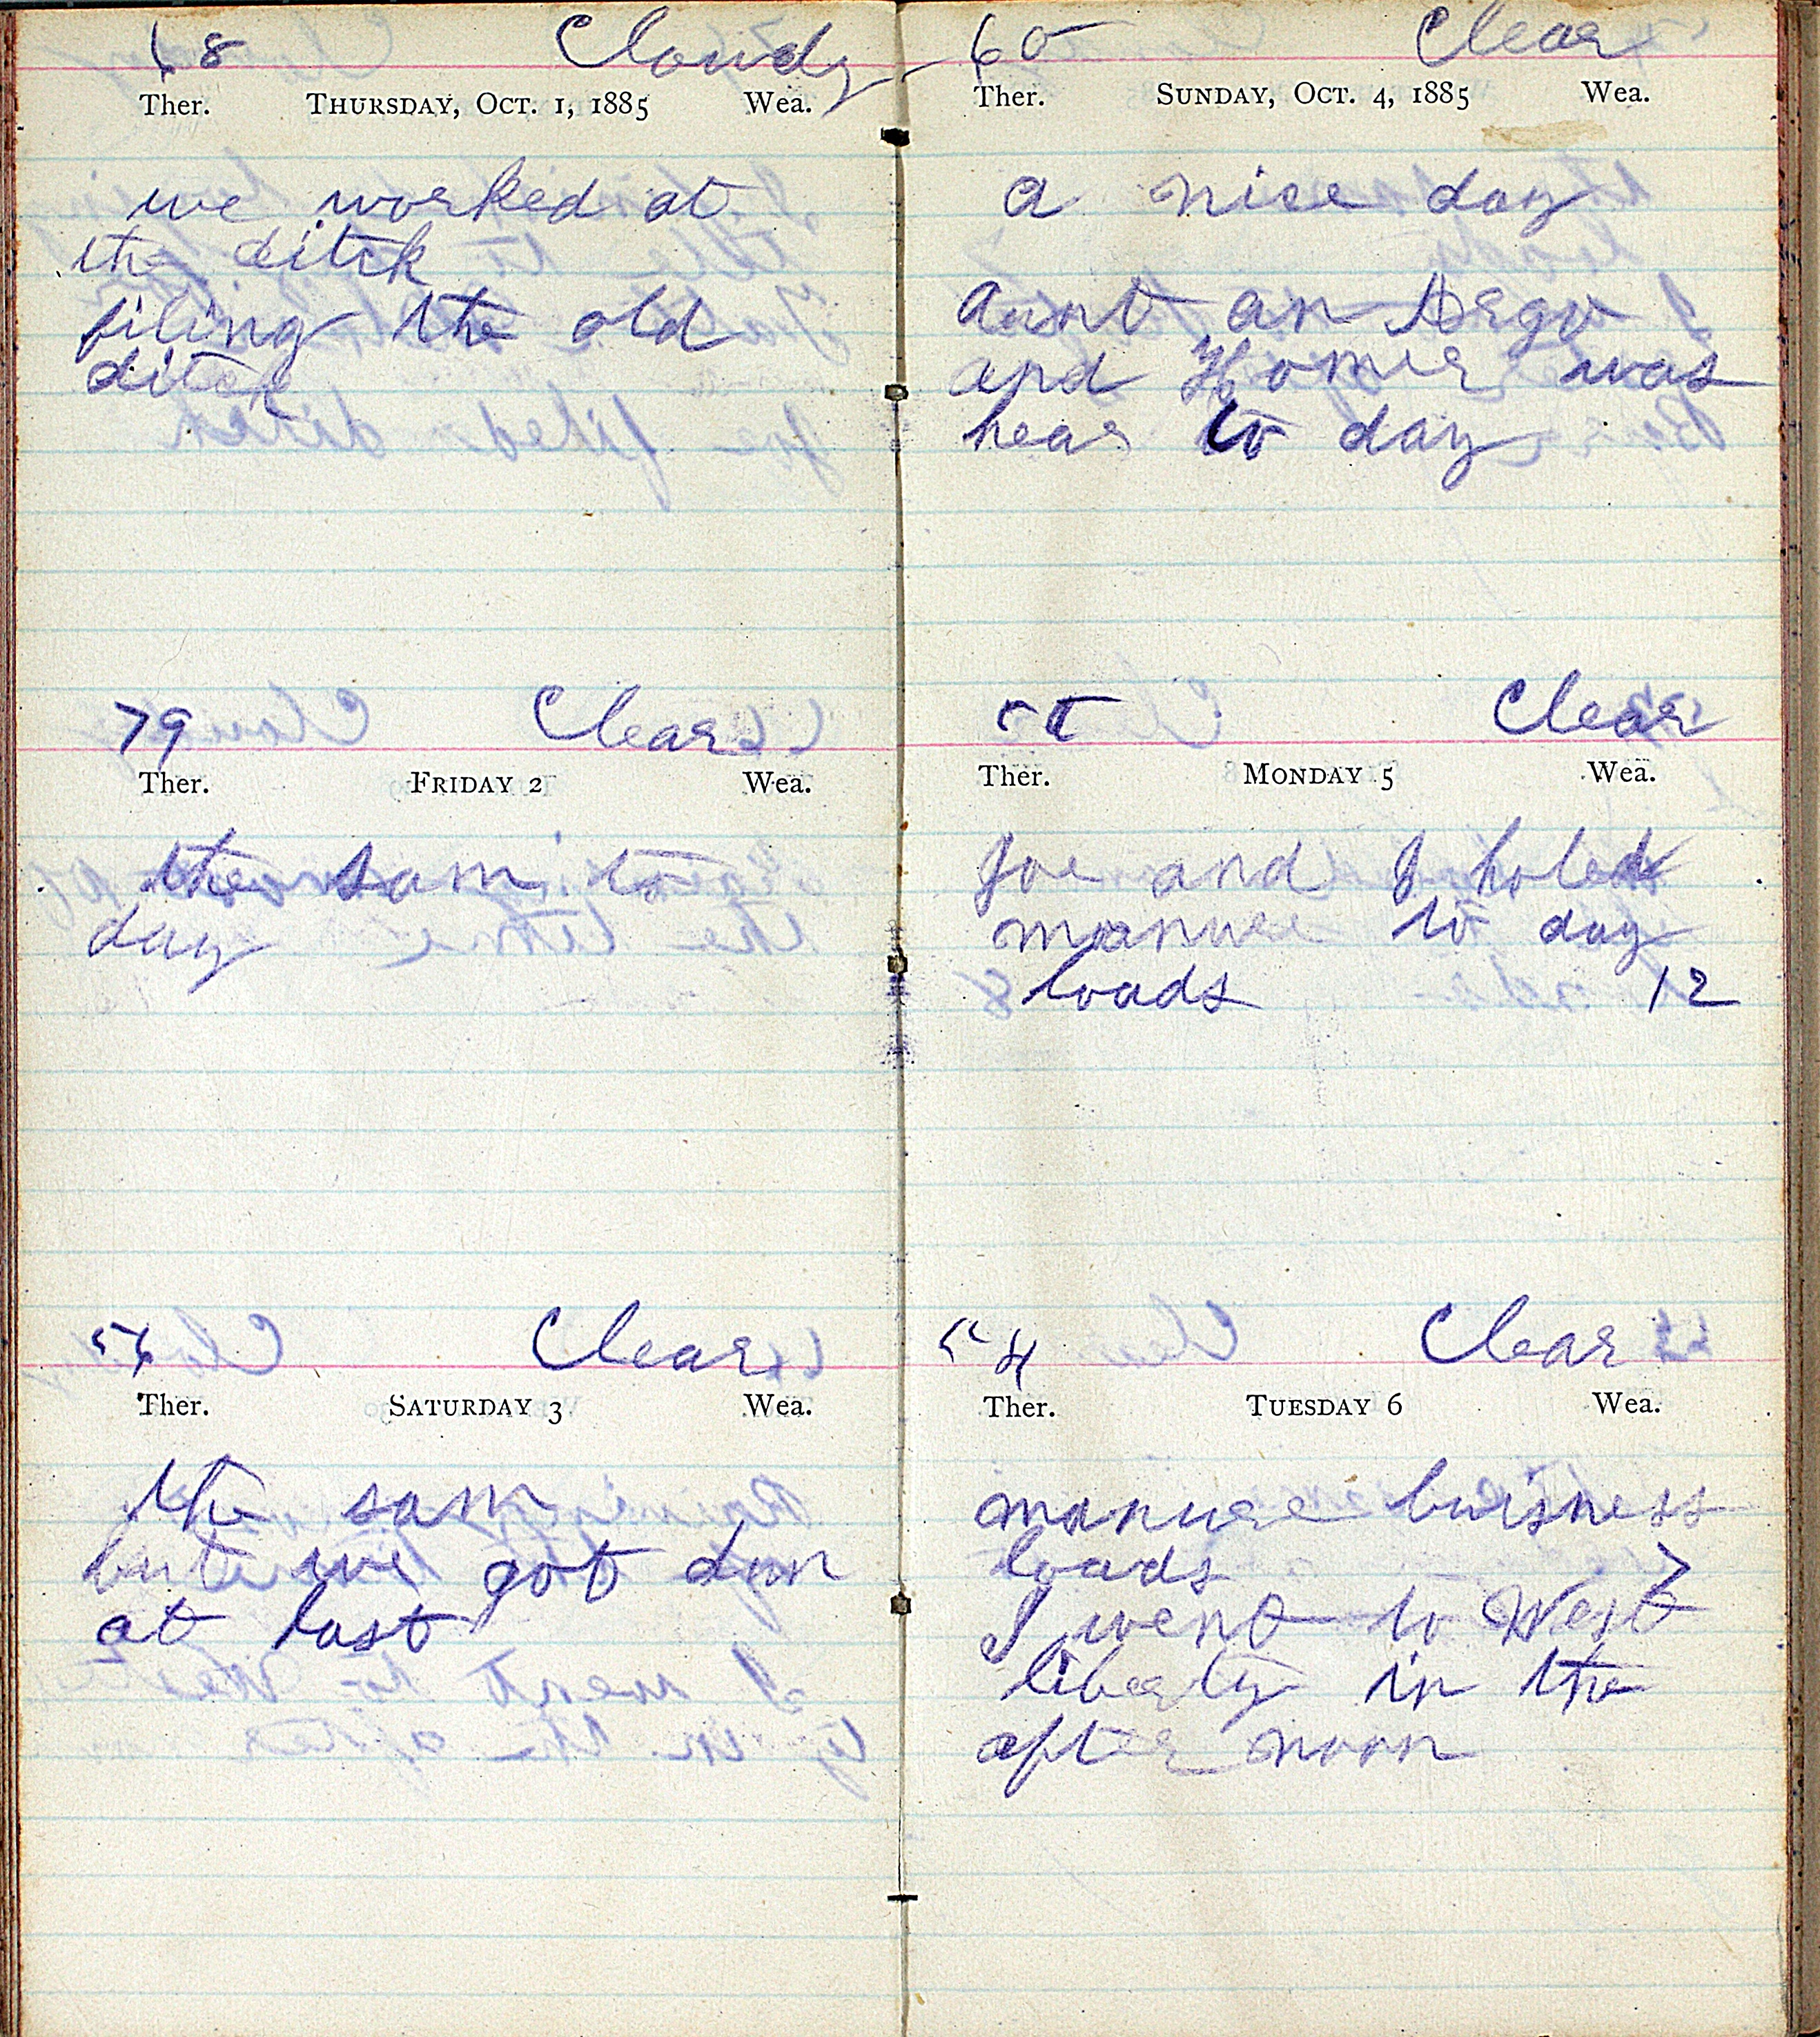 68 Cloudy
Ther. THURSDAY, OCT. 1, 1885 Wea.
we worked at
the ditch
filing the old
ditch
79 Clear
Ther. FRIDAY 2 Wea.
the sam to
day
56 Clear
Ther. SATURDAY 3 Wea.
the sam
but we got dun
at last
60 Clear
Ther. SUNDAY, OCT. 4, 1885 Wea.
a nise day
Aunt an
and Homer was
hear to day
55 Clear
Ther. MONDAY 5 Wea.
Joe and I holed
manure to day
loads 12
54 Clear
Ther. TUESDAY 6 Wea.
manure buisness
loads 7
I went to West
liberty in the
after noon